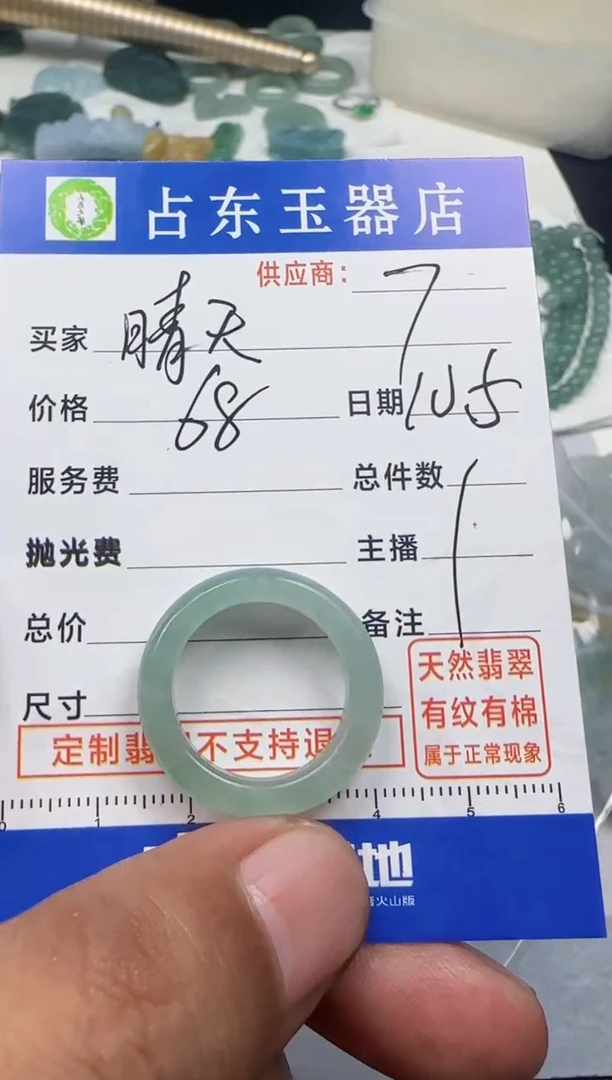 占东玉器店
供应商: 7
买家 晴天
价格 68 日期 105
服务费 总件数 1
抛光费 主播
总价 备注
尺寸
天然翡翠
有纹有棉
属于正常现象
定制翡 不支持退
0 1 2 4 5 6
地
火山版